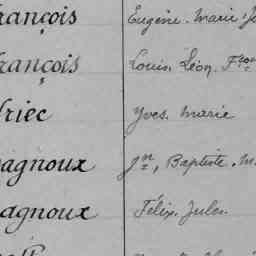 rançois Eugène. Marie. J
rançois Louis. Léon. Fçois
riec Yves. Marie
agnoux Jn, Baptiste. M
agnoux Félix. Jules.